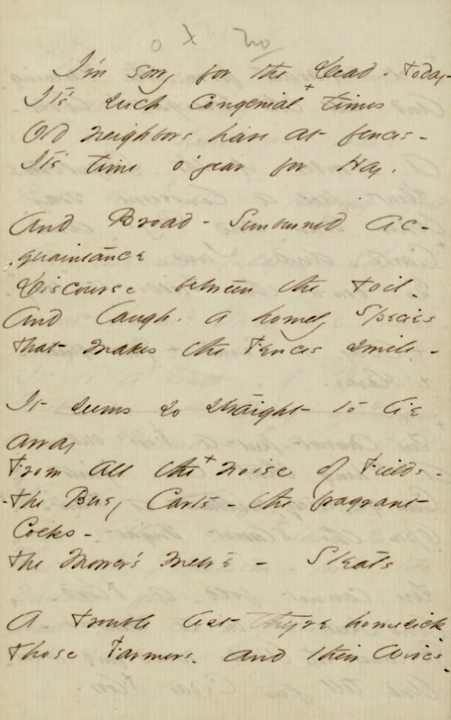 I'm sorry for the Dead - Today -
It's such Congenial + times
Old neighbors have at fences -
It's time o' year for Hay.
And Broad - Sunburned Ac-
quaintance
Discourse between the Toil -
And laugh. a homely Species
That makes the Fences smile -
It seems so straight to lie
away
From all the + noise of Fields -
The Busy Carts - the fragrant
Cocks -
The Mower's metre - Steals
A trouble lest they're homesick
Those Farmers. and their Wives